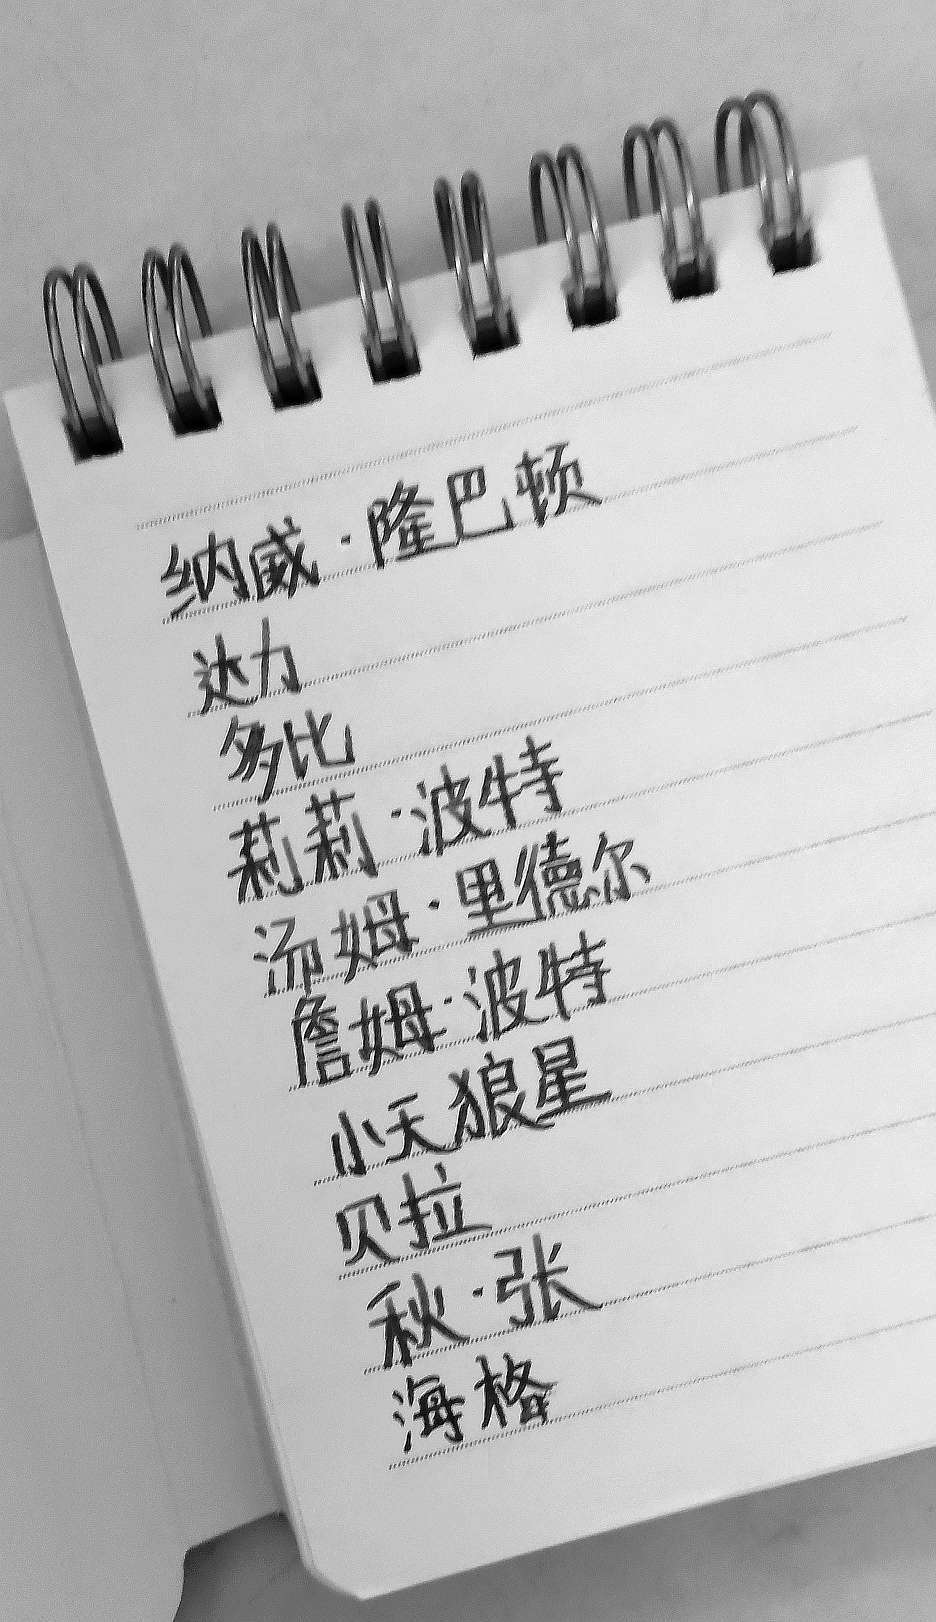 纳威·隆巴顿
达力
多比
莉莉·波特
汤姆·里德尔
詹姆·波特
小天狼星
贝拉
秋·张
海格